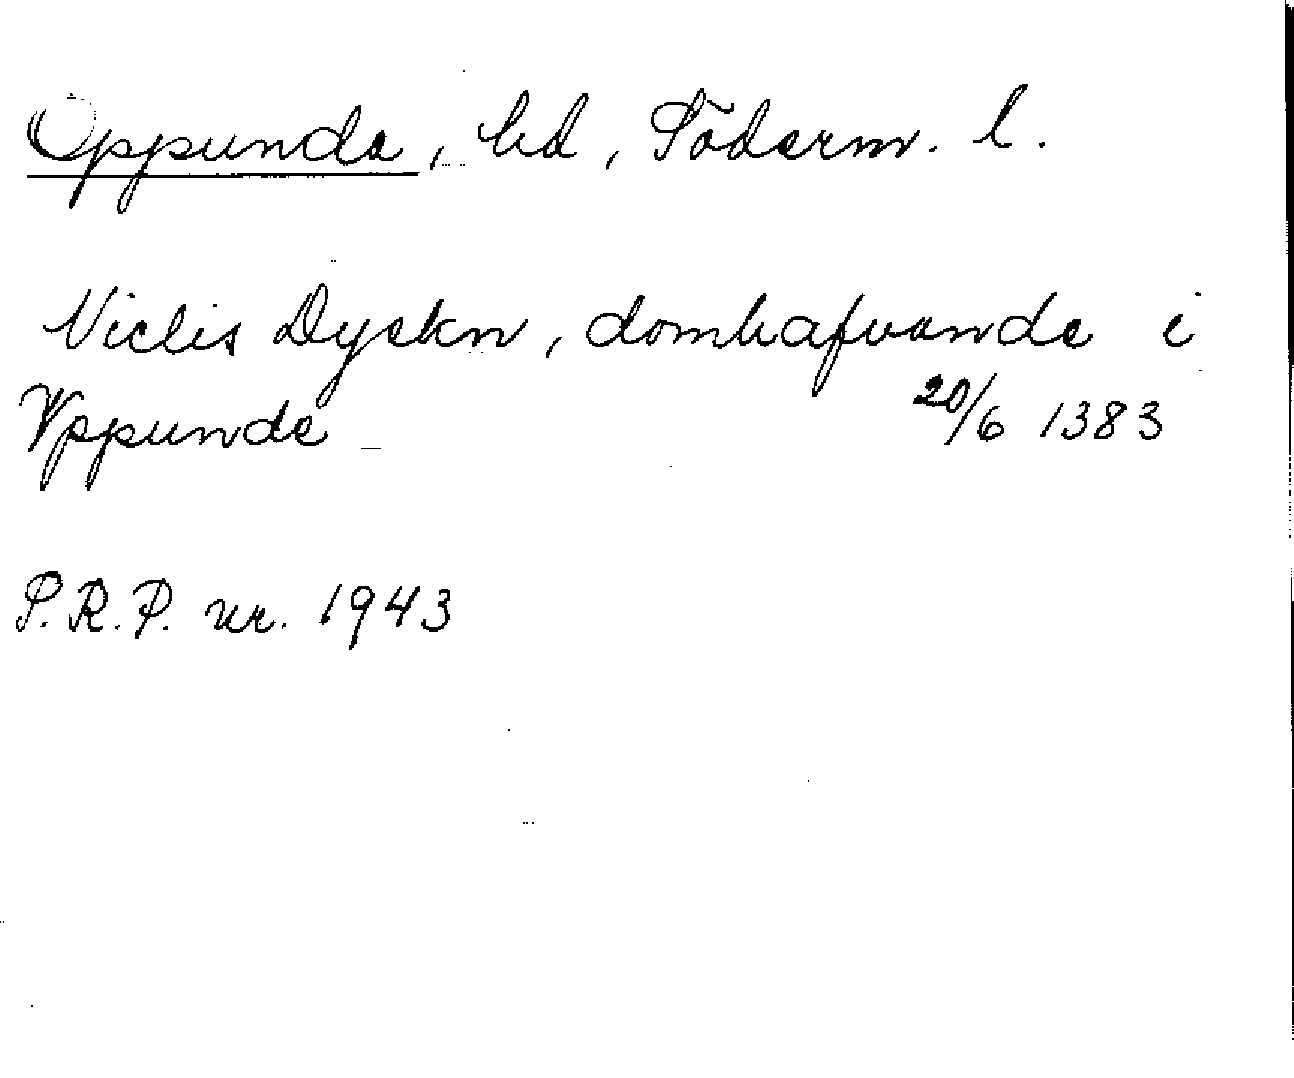 Oppunda, hd, Söderm. l.
Niclis Dyekn, domhafvande i
Vppunde 20/6 1383
S.R.P. nr. 1943